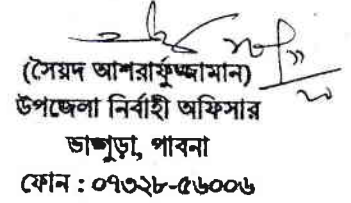 (সৈয়দ আশরাফুজ্জামান)
উপজেলা নির্বাহী অফিসার
ভাঙ্গুড়া, পাবনা
ফোন : ০৭৩২৮-৫৬০০৬